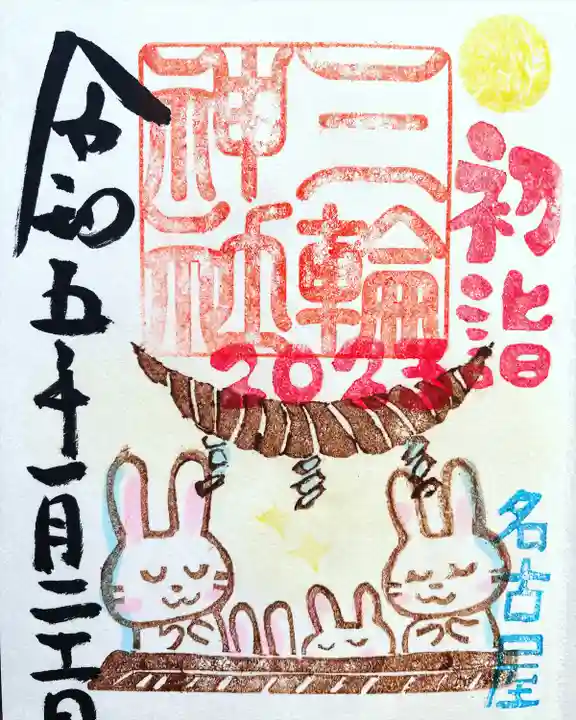 初詣
三輪
神社
2023
名古屋
令和五年一月二十一日